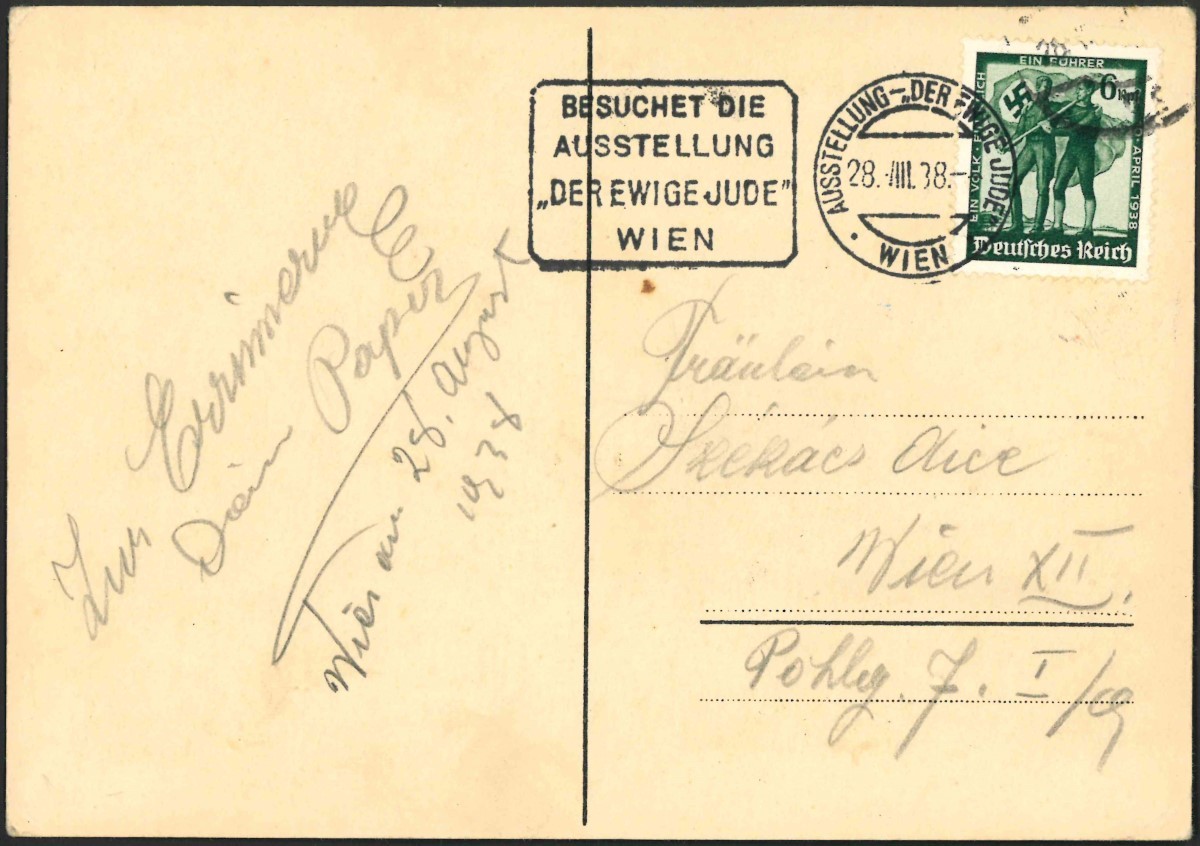 BESUCHET DIE
AUSSTELLUNG
„DER EWIGE JUDE”
WIEN
AUSSTELLUNG-„DER EWIGE JUDE”
28. VIII. 38.-
• WIEN •
EIN VOLK · EIN REICH
EIN FÜHRER
10. APRIL 1938
6 Rpf
Deutsches Reich
Zur Erinnerung
Dein
Wien am 28. August
1938
Fräulein
Székács Alice
Wien XII.
Pohlg. 7. I/19